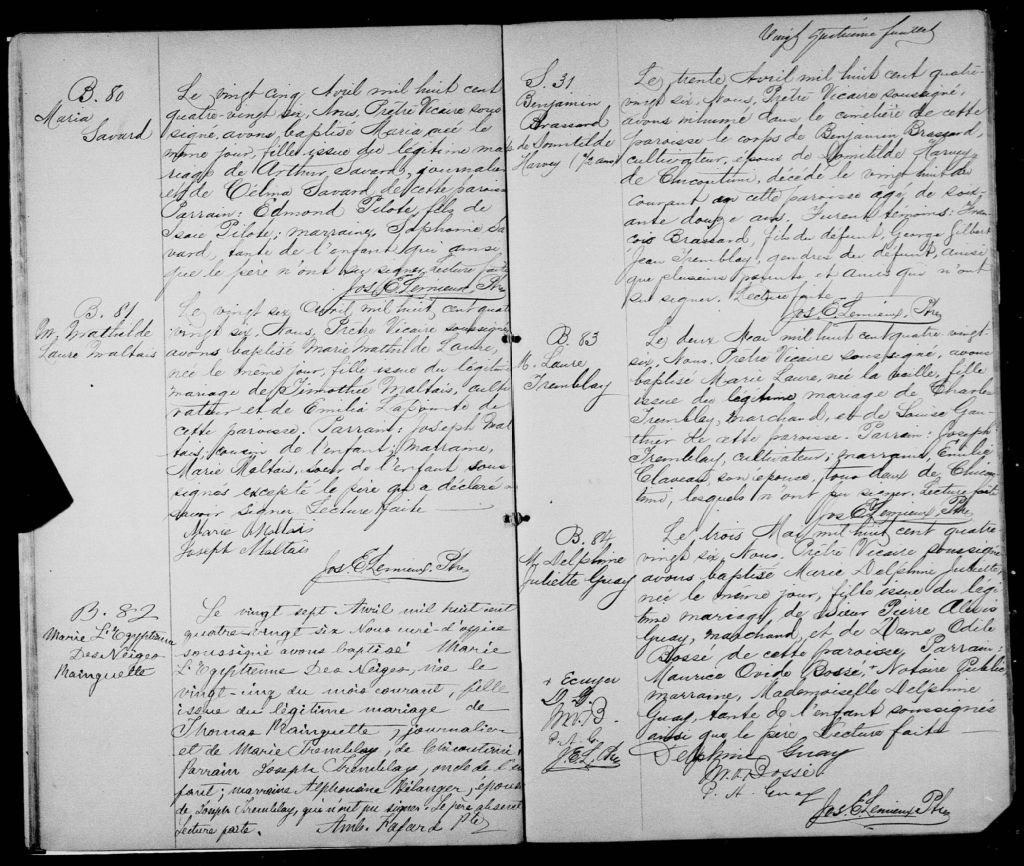 B. 80
Maria
Savard
Le vingt cinq Avril mil huit cent
quatre-vingt six, Nous, Prêtre Vicaire sous
signé, avons baptisé Maria, née le
même jour, fille issue du légitime ma
riage de Arthur Savard, journalier
et de Célina Savard de cette paroisse
Parrain: Edmond Pilote, fils de
Isaie Pilote; marraine, Sophonie Sa
vard, tante de l'enfant qui ainsi
que le père n'ont su signer, lecture faite
Jos. E Lemieux, Ptre
B. 81
M. Mathilde
Laure Maltais
Le vingt six Avril mil huit cent quat
vingt six, Nous, Prêtre Vicaire soussigné
avons baptisé Marie Mathilde Laure,
née le même jour, fille issue du légitime
mariage de Timothée Maltais, culti
vateur et de Emilia Lapointe de
cette paroisse. Parrain: Joseph Mal
tais, cousin de l'enfant; Marraine,
Marie Maltais, soeur de l'enfant sous
signés excepté le père qui a déclaré
savoir signer. Lecture faite
Marie Maltais
Joseph Maltais
Jos. E Lemieux Ptre
B. 82
Marie L'Egyptienne
Des Neiges
Mainguette
Le vingt sept Avril mil huit cent
quatre-vingt six Nous curé-d'office
soussigné avons baptisé Marie
L'Egyptienne Des Neiges, née le
vingt-cinq du mois courant, fille
issue du légitime mariage de
Thomas Mainguette, journalier
et de Marie Tremblay, de Chicoutimi.
Parrain Joseph Tremblay, oncle de l'en
fant; marraine Alphonsine Bélanger, épouse
de Joseph Tremblay, qui n'ont pu signer. Le père absent
Lecture faite. Amb. Fafard Ptre
Vingt quatrième feuillet
S. 31
Benjamin
Brassard
de Domitilde
Harvey (72 ans)
Le trente Avril mil huit cent quatre-
vingt six, Nous, Prêtre Vicaire soussigné,
avons inhumé dans le cimetière de cette
paroisse le corps de Benjamin Brassard,
cultivateur, époux de Domitilde Harvey
de Chicoutimi, décédé le vingt huit du
courant en cette paroisse agé de soix-
ante douze ans. Furent témoins: Fran
cois Brassard, fils du défunt, George Gilbert
Jean Tremblay, gendres du défunt, ainsi
que plusieurs parents et amis qui n'ont
su signer. Lecture faite
Jos E Lemieux, Ptre
B. 83
M. Laure
Tremblay
Le deux Mai mil huit cent quatre vingt-
six, Nous, Prêtre Vicaire soussigné, avons
baptisé Marie Laure, née la veille, fille
issue du légitime mariage de Charles
Tremblay, marchand, et de Louise Gau
thier de cette paroisse. Parrain: Joseph
Tremblay, cultivateur; marraine, Emilie
Claveau, son épouse, tous deux de Chicou
timi, lesquels n'ont pu signer, Lecture faite
Jos E Lemieux Ptre
B. 84
M. Delphine
Juliette Guay
Le trois May mil huit cent quatre
vingt six, Nous, Prêtre Vicaire soussigné
avons baptisé Marie Delphine Juliette,
née le même jour, fille issue du légi
time mariage, de Sieur Pierre Alexis
Guay, marchand, et de Dame Odile
Bossé de cette paroisse, Parrain:
Maurice Ovide Bossé, + Notaire Public
marraine, Mademoiselle Delphine
Guay, tante de l'enfant soussignés
ainsi que le père Lecture faite
+ Ecuyer
D. G.
M.O.B.
P. A. G.
J.E.L. Ptre
Delphine Guay
M.O. Bossé
P. A. Guay
Jos. E Lemieux Ptre